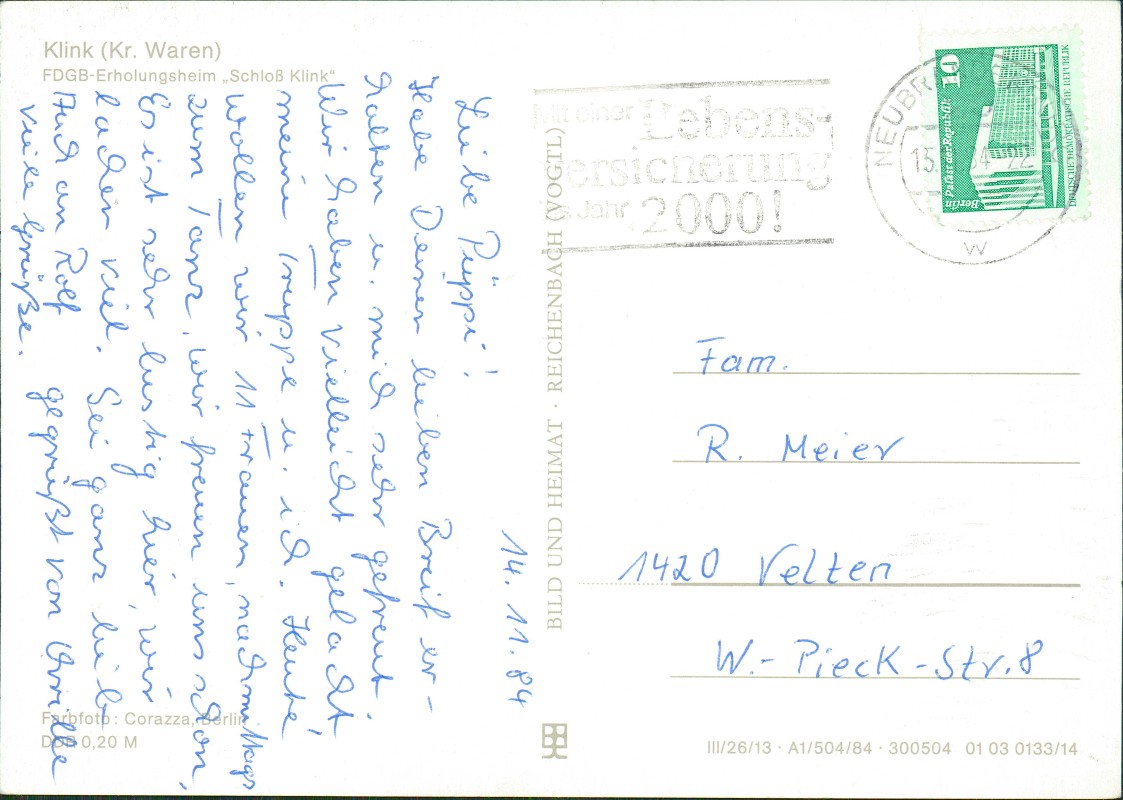 Klink (Kr. Waren)
FDGB-Erholungsheim „Schloß Klink“
14. 11. 84
Liebe Püppi!
Habe Deinen lieben Brief er-
halten u. mich sehr gefreut.
Wir haben vielleicht gelacht
meine Truppe u. ich. Heute
wollen wir 11 Frauen, nachmittags
zum Tanz, wir freuen uns schon,
Es ist sehr lustig hier, wir
lachen viel. Sei ganz lieb
gegrüßt von
Auch an Rolf
viele Grüße.
Farbfoto: Corazza, Berlin
DDR 0,20 M
BILD UND HEIMAT · REICHENBACH (VOGTL)
Mit einer Lebens-
versicherung
ins Jahr 2000!
15. 84 - 22
W
10
Berlin Palast der Republik
Berlin
DEUTSCHE DEMOKRATISCHE REPUBLIK
Fam.
R. Meier
1420 Velten
W.-Pieck-Str. 8
III/26/13 · A1/504/84 · 300504 01 03 0133/14